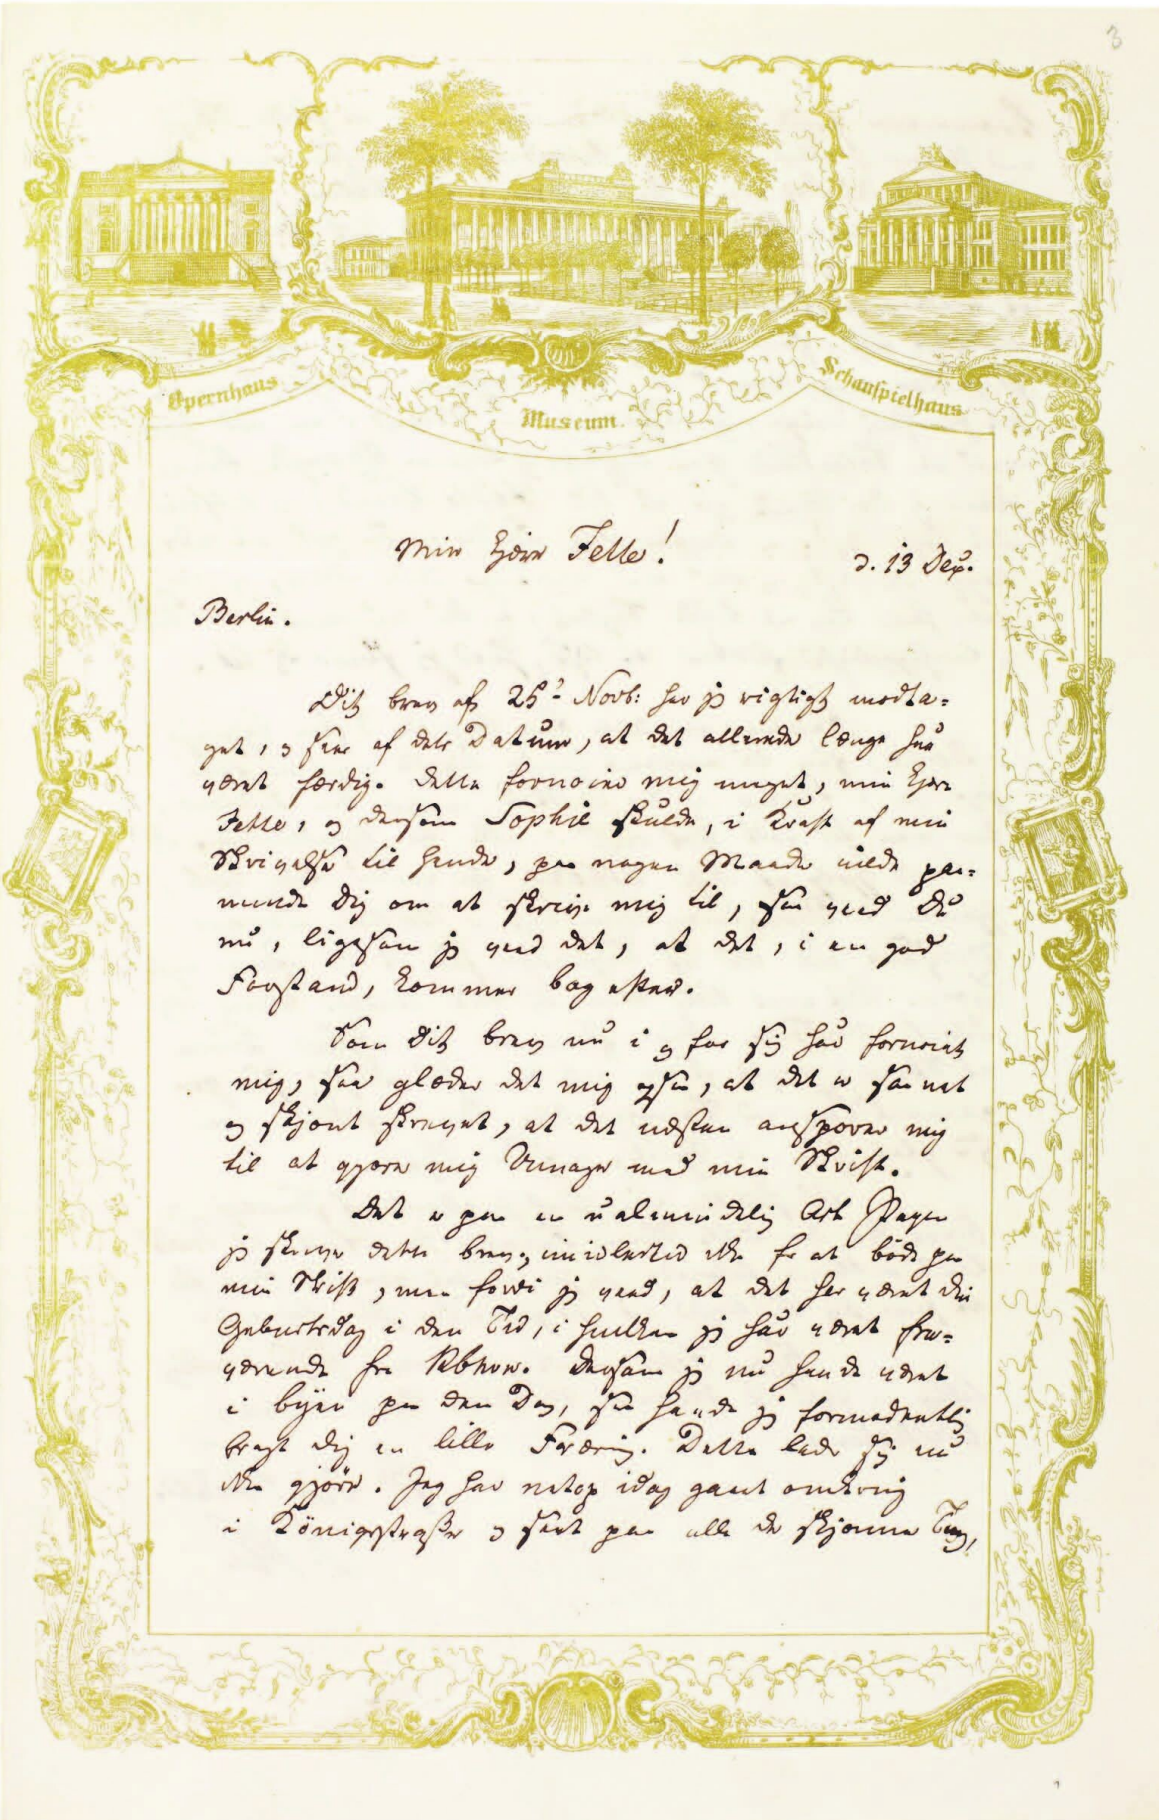 3
Opernhaus
Museum.
Schauspielhaus
Min kjære Jette!
d. 13 Dec.
Berlin.
Dit brev af 25 Novb: har jeg rigtigt modta-
get, og seer af dets Datum, at det allerede længe har
været færdig. Dette fornøier mig meget, min kjære
Jette, og dersom Sophie skulde, i Kraft af min
Skrivelse til hende, paa nogen Maade ville paa-
minde Dig om at skrive mig til, saa veed Du
nu, ligesom jeg veed det, at det, i en god
Forstand, kommer bag efter.
Som Dit brev nu i og for sig har fornøiet
mig, saa glæder det mig ogsaa, at det er saa net
og skjønt skrevet, at det næsten ansporer mig
til at gjøre mig Umage med min Skrift.
Det er paa en ualmindelig Art Papir
jeg skriver dette brev, imidlertid ikke for at bøde paa
min Skrift, men fordi jeg veed, at det har været din
Geburtsdag i den Tid, i hvilken jeg har været fra-
værende fra Kbhvn. Dersom jeg nu havde været
i byen paa den Dag, saa havde jeg formodentlig
bragt Dig en lille Foræring. Dette lader sig nu
ikke gjøre. Jeg har netop idag gaaet omkring
i Königsstraße og seet paa alle de skjønne Ting,